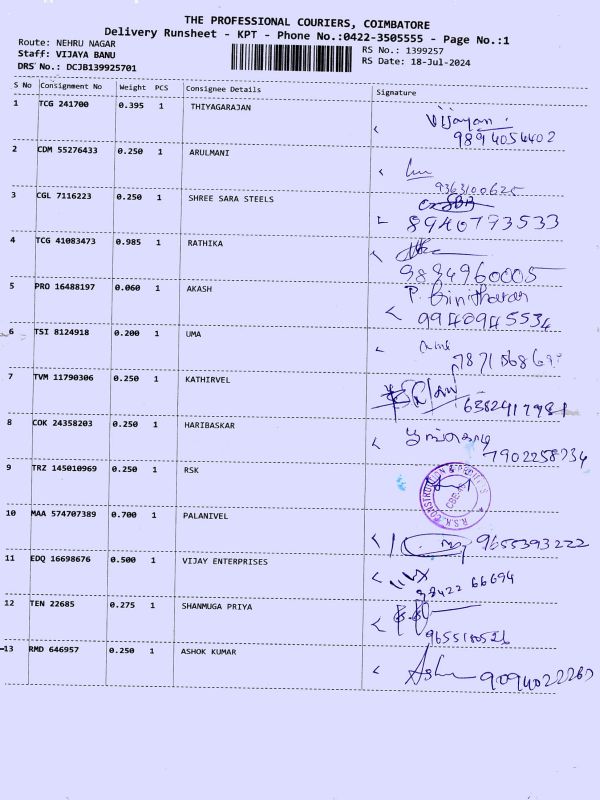 THE PROFESSIONAL COURIERS, COIMBATORE
Delivery Runsheet - KPT - Phone No.:0422-3505555 - Page No.:1
Route: NEHRU NAGAR
Staff: VIJAYA BANU
DRS No.: DCJB139925701
RS No.: 1399257
RS Date: 18-Jul-2024
S No Consignment No Weight PCS Consignee Details Signature
1 TCG 241700 0.395 1 THIYAGARAJAN Vijayan.
9894054402
2 CDM 55276433 0.250 1 ARULMANI
9363100625
3 CGL 7116223 0.250 1 SHREE SARA STEELS
8940793533
4 TCG 41083473 0.985 1 RATHIKA
9894960005
5 PRO 16488197 0.060 1 AKASH
9940945534
6 TSI 8124918 0.200 1 UMA
7 TVM 11790306 0.250 1 KATHIRVEL
6382417981
8 COK 24358203 0.250 1 HARIBASKAR
7902258734
9 TRZ 145010969 0.250 1 RSK
10 MAA 574707389 0.700 1 PALANIVEL
9655393222
11 EDQ 16698676 0.500 1 VIJAY ENTERPRISES
98422 66694
12 TEN 22685 0.275 1 SHANMUGA PRIYA
13 RMD 646957 0.250 1 ASHOK KUMAR